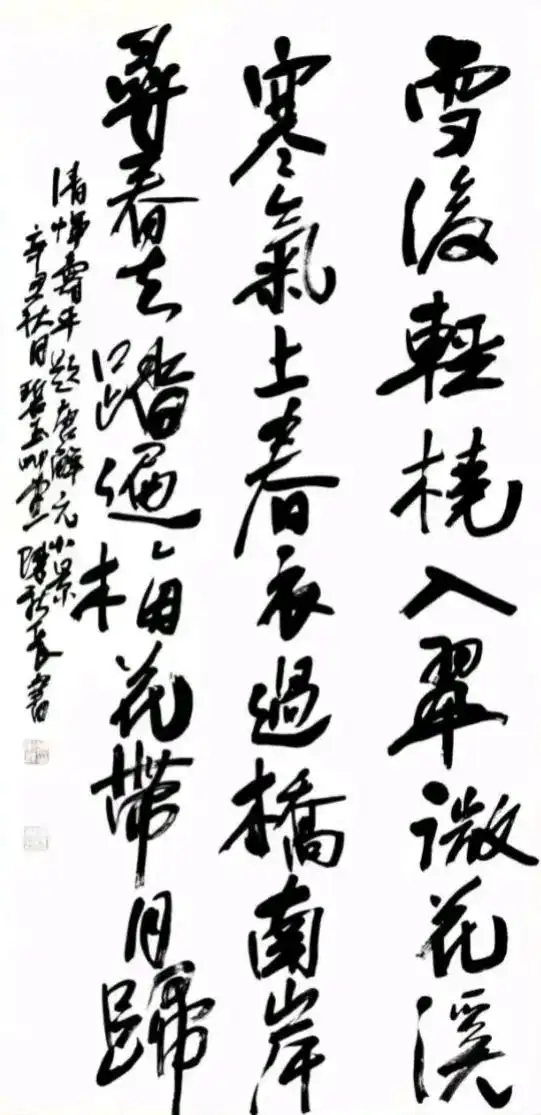 雪後輕橈入翠微花溪
寒氣上春衣過橋南岸
尋春去踏遍梅花帶月歸
清惲壽平題唐解元小景
辛丑秋日碧玉堂陳書